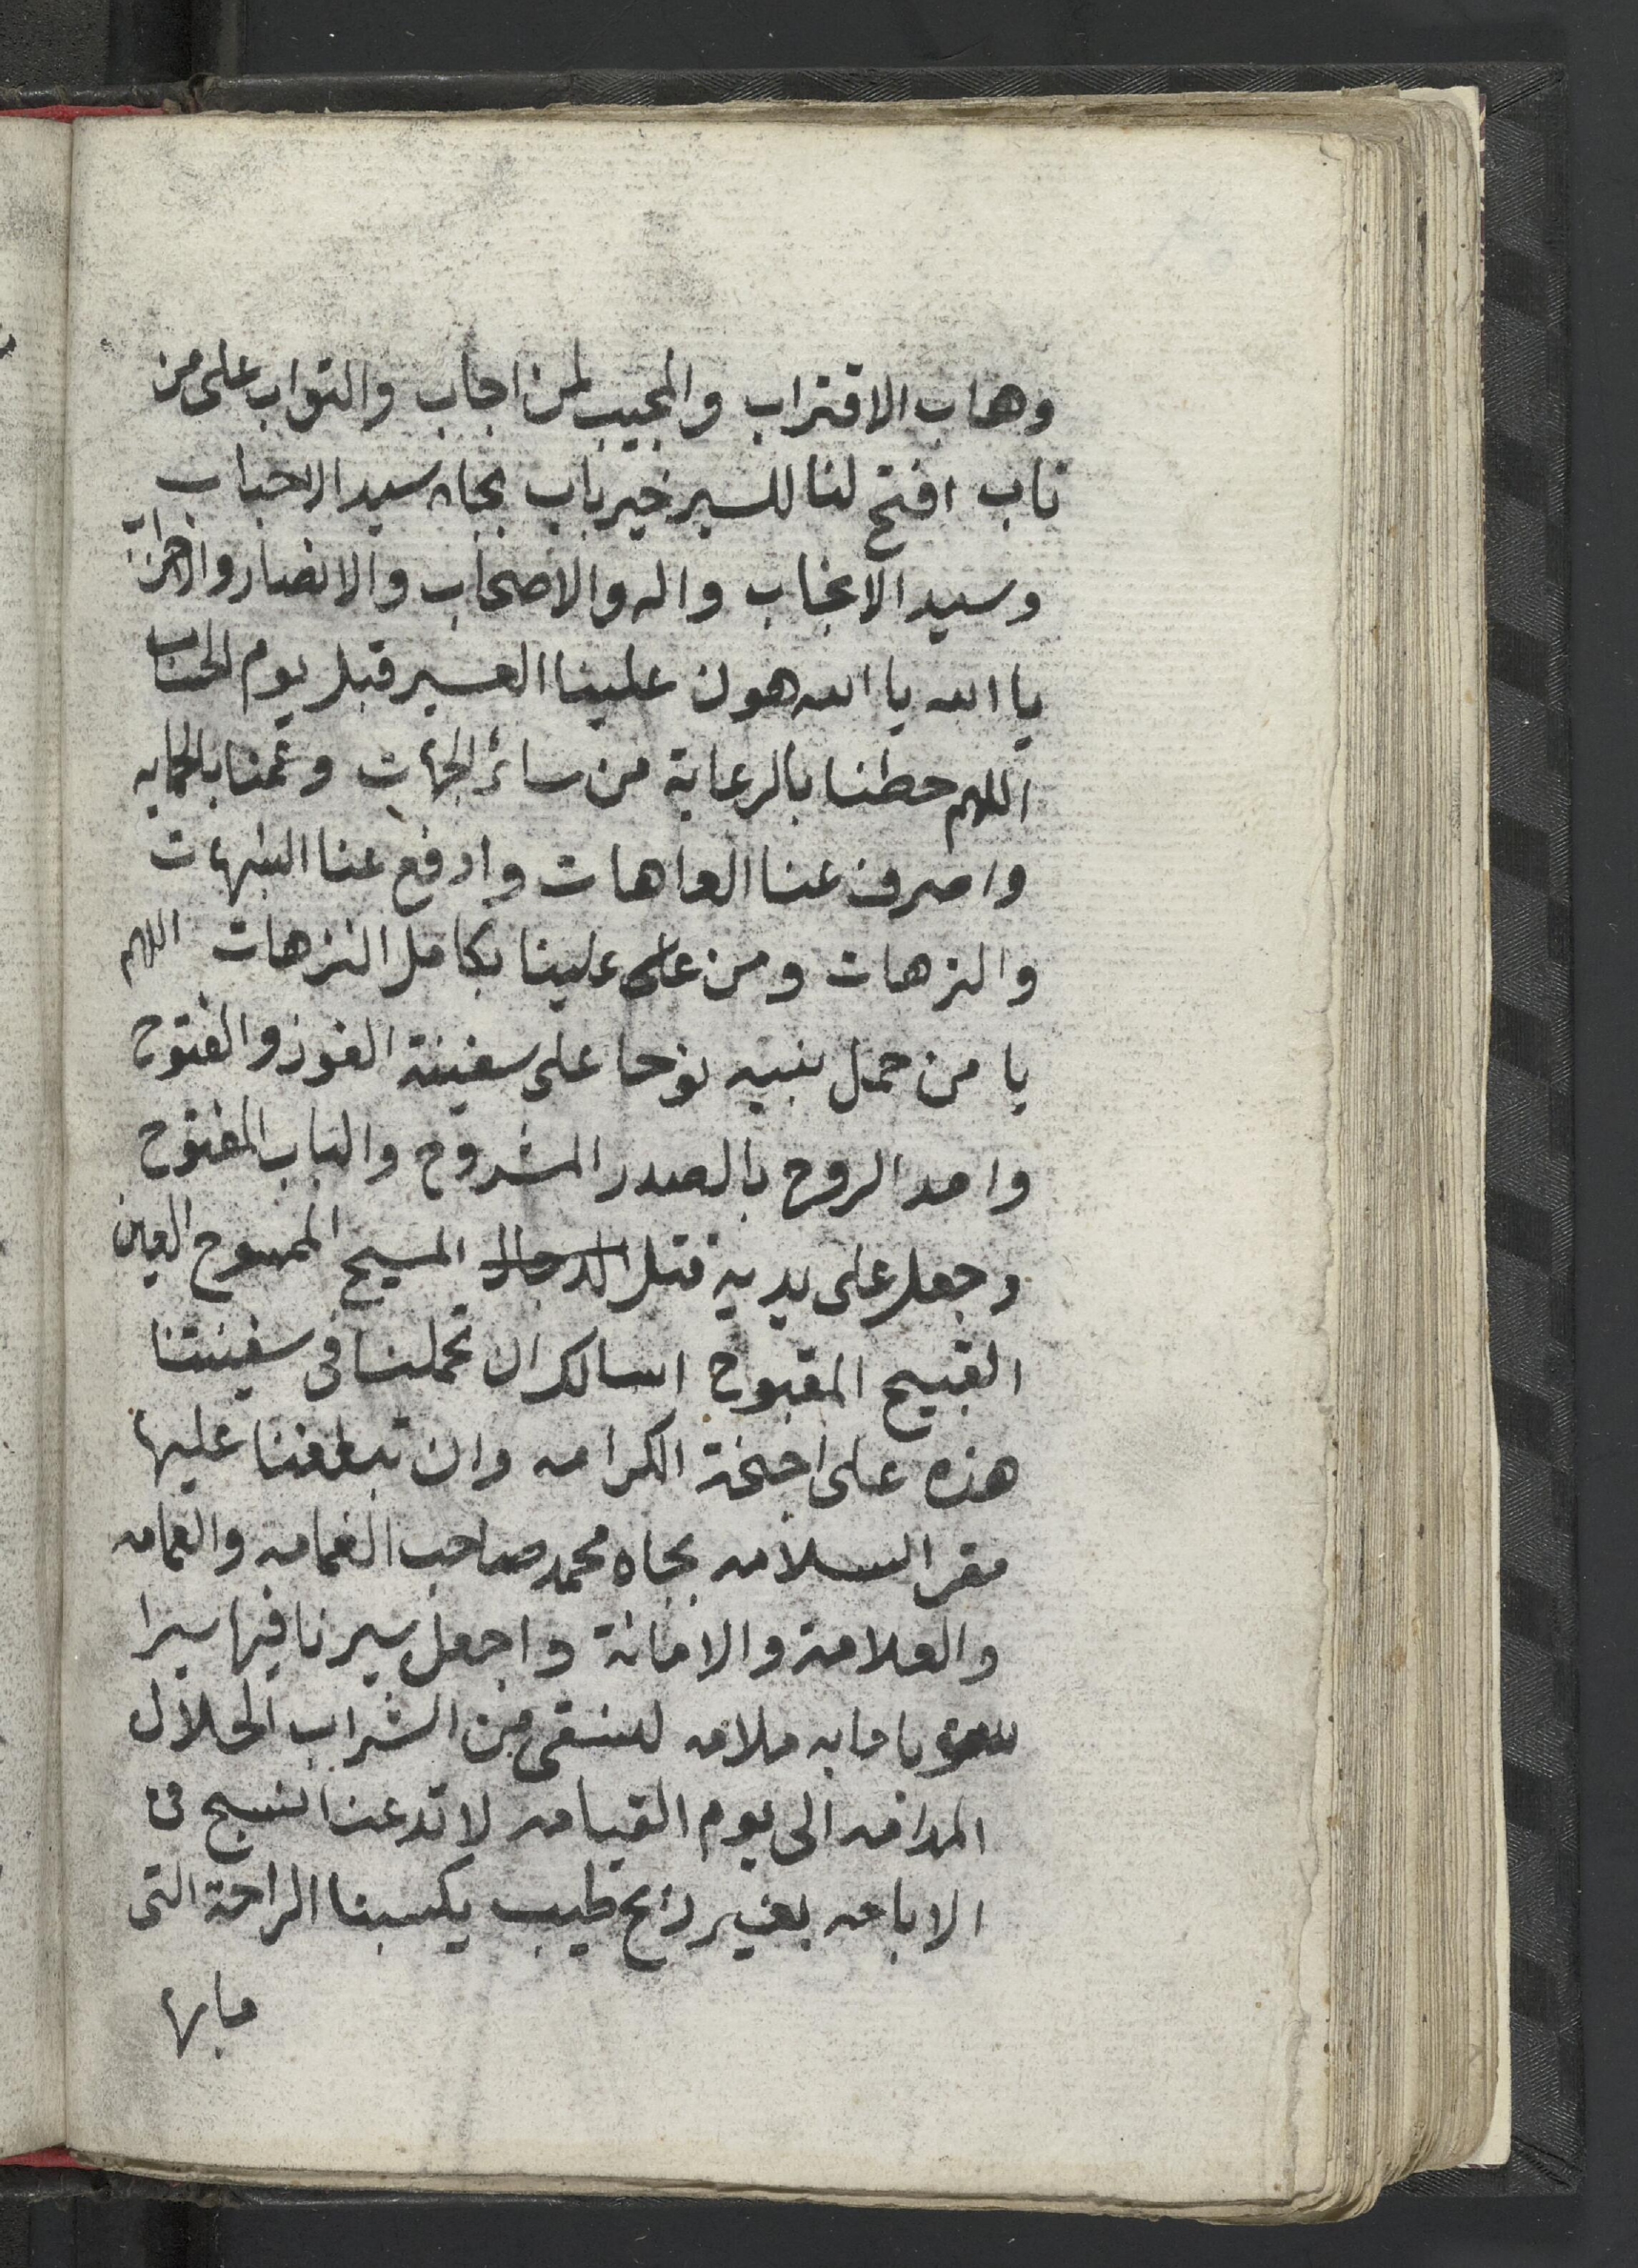 وهاب الاقتراب والمجيب لمن اجاب والتواب على من
تاب افتح لنا للسير خير باب بجاه سيد الاحباب
وسيد الانجاب واله والاصحاب والانصار والاحزاب
يا الله يا الله هون علينا العسير قبل يوم الحساب
اللهم حطنا بالرعاية من سائر الجهات وعمنا بالحمايه
واصرف عنا العاهات وادفع عنا الشبهات
والنزهات ومن على علينا بكامل النزهات اللهم
يا من حمل نبيه نوحا على سفينة الفوز والفتوح
وامد الروح بالصدر المشروح والباب المفتوح
وجعل على يديه قتل الدجال المسيح الممسوح العين
القبيح المقبوح اسالك ان تحملنا فى سفينتنا
هذه على اجنحة الكرامه وان تبلغنا عليها
مقر السلامه بجاه محمد صاحب الغمامه والعمامه
والعلامة والامانة واجعل سيرنا فيها سيرا
يا مابه ملامه لنسقى من الشراب الحلال
المدامه الى يوم القيامه لا تدعنا نسبح فى
الاباحه بغير رائح طيب يكسبنا الراحة التى
مابها